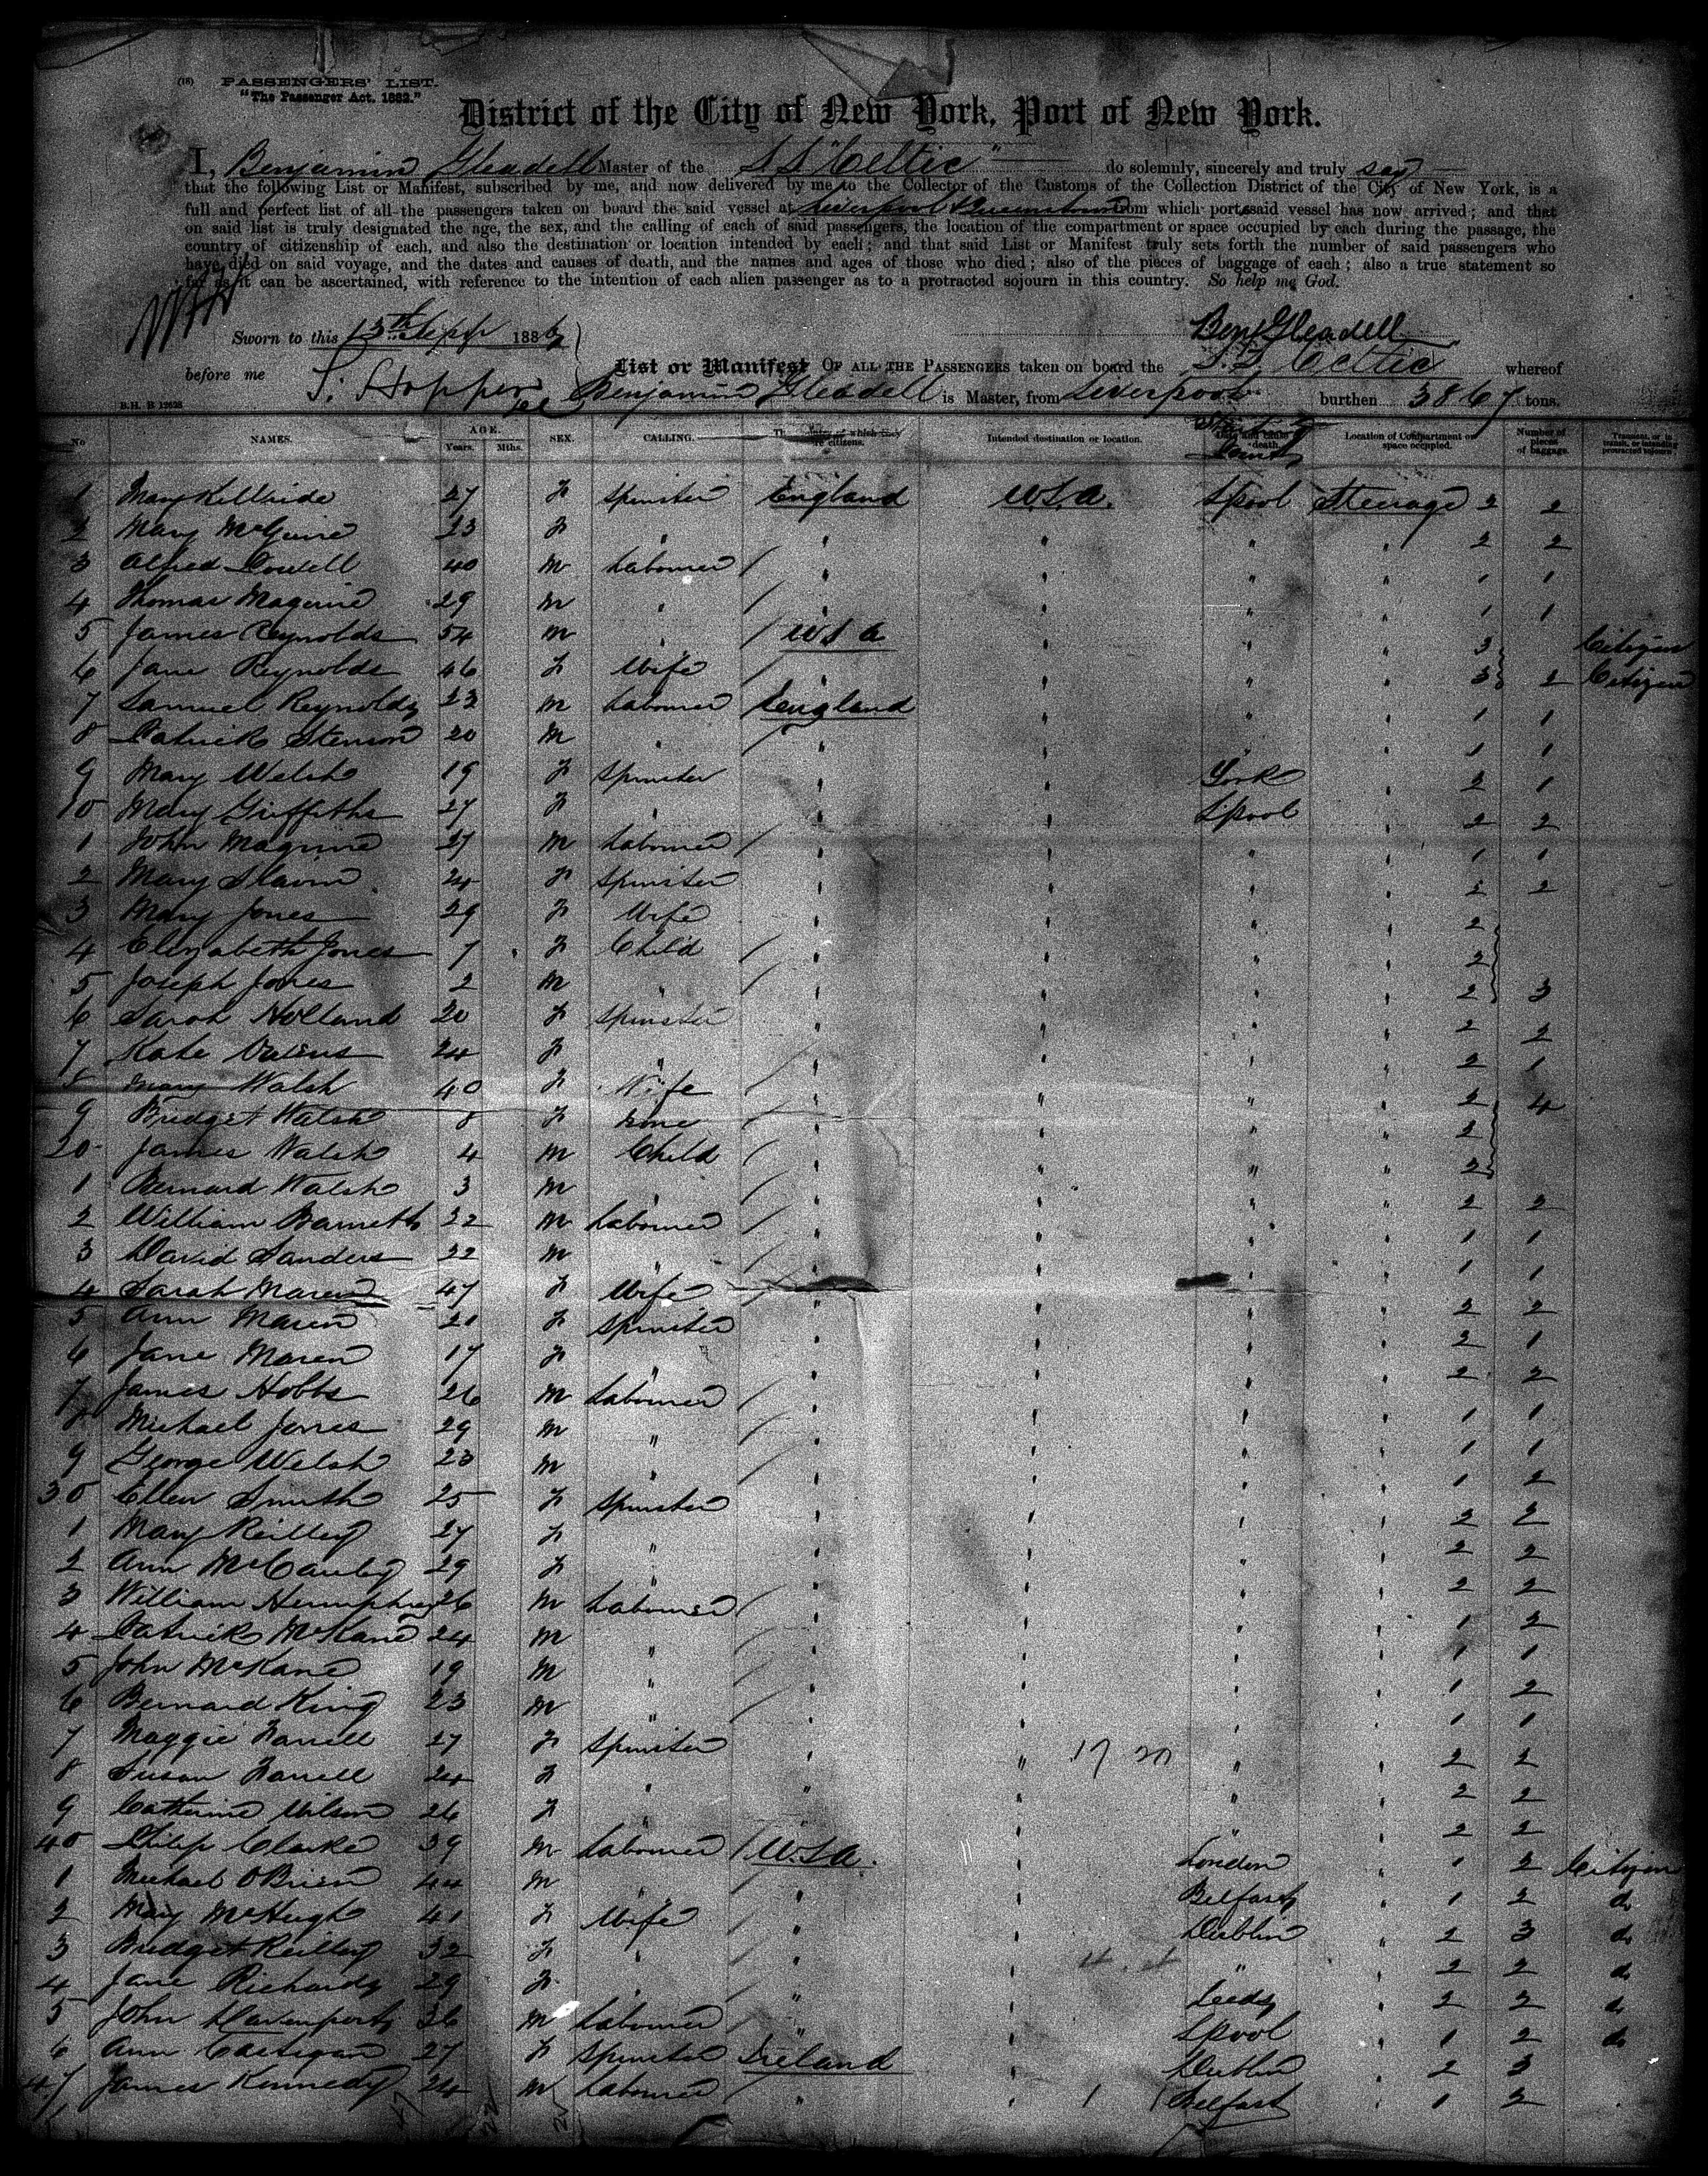 (18) PASSENGERS' LIST.
"The Passenger Act. 1882."
District of the City of New York, Port of New York.
I, Benjamin Gleadell Master of the S.S. "Celtic" do solemnly, sincerely and truly say
that the following List or Manifest, subscribed by me, and now delivered by me to the Collector of the Customs of the Collection District of the City of New York, is a
full and perfect list of all the passengers taken on board the said vessel at Liverpool & Queenstown from which port said vessel has now arrived; and that
on said list is truly designated the age, the sex, and the calling of each of said passengers, the location of the compartment or space occupied by each during the passage, the
country of citizenship of each, and also the destination or location intended by each; and that said List or Manifest truly sets forth the number of said passengers who
have died on said voyage, and the dates and causes of death, and the names and ages of those who died; also of the pieces of baggage of each; also a true statement so
far as it can be ascertained, with reference to the intention of each alien passenger as to a protracted sojourn in this country. So help me God.
Sworn to this 13th Sept 1886 Benj Gleadell
before me S. Hopper List or Manifest OF ALL THE PASSENGERS taken on board the S.S. Celtic whereof
B.H. B Benjamin Gleadell is Master, from Liverpool burthen 3867 tons.
No NAMES. AGE. Years. Mths. SEX. CALLING. citizens. Intended destination or location. Location of Compartment or space occupied. Number of pieces of baggage.
1 Mary Killbride 27 F Spinster England U.S.A. L'pool Steerage 2 2
2 Mary McGuire 23 F " " " " " 2 2
3 Alfred Dowell 40 M Labourer " " " " 1 1
4 Thomas Maguire 29 M " " " " " 1 1
5 James Reynolds 54 M " U S A " " " 3 Citizen
6 Jane Reynolds 46 F Wife " " " " 3 2 Citizen
7 Samuel Reynolds 23 M Labourer England " " " 1 1
8 Patrick Stenson 20 M " " " " " 1 1
9 Mary Welsh 19 F Spinster " " York " 2 1
10 Mary Griffiths 27 F " " " L'pool " 2 2
1 John Maguire 27 M Labourer " " " " 1 1
2 Mary Slavin 24 F Spinster " " " " 2 2
3 Mary Jones 29 F Wife " " " " 2
4 Elizabeth Jones 7 F Child " " " " 2
5 Joseph Jones 2 M " " " " " 2 3
6 Sarah Holland 20 F Spinster " " " " 2 2
7 Kate 24 F " " " " " 2 1
8 Mary Walsh 40 F Wife " " " " 2 4
9 Bridget Walsh 8 F " " " " 2
20 James Walsh 4 M Child " " " " 2
1 Bernard Walsh 3 M " " " " " 2 2
2 William Barnett 22 M Labourer " " " " 1 1
3 David Sanders 22 M " " " " " 1 1
4 Sarah Maren 47 F Wife " " " " 2 2
5 Ann Maren 21 F Spinster " " " " 2 1
6 Jane Maren 17 F " " " " " 2 2
7 James Hobbs 26 M Labourer " " " " 1 1
8 Michael Jones 29 M " " " " " 1 1
9 George Welsh 23 M " " " " " 1 2
30 Ellen Smith 25 F Spinster " " " " 2 2
1 Mary Reilley 27 F " " " " " 2 2
2 Ann McCauley 29 F " " " " " 2 2
3 William Humphrey 26 M Labourer " " " " 1 2
4 Patrick McKane 24 M " " " " " 1 1
5 John McKane 19 M " " " " " 1 2
6 Bernard King 23 M " " " " " 1 1
7 Maggie Farrell 27 F Spinster " " " " 2 2
8 Susan Farrell 24 F " " " " " 2 2
9 Catherine Wilson 26 F " " " " " 2 2
40 Philip Clarke 39 M Labourer U.S.A. " London " 1 2 Citizen
1 Michael O'Brien 44 M " " " Belfast " 1 2 do
2 Mary McHugh 41 F Wife " " Dublin " 2 3 do
3 Bridget Reilley 32 F " " " " " 2 2 do
4 Jane Richards 29 F " " " Leeds " 2 2 do
5 John Davenport 36 M Labourer " " L'pool " 1 2 do
6 Ann Castigan 27 F Spinster Ireland " Dublin " 2 3
47 James Kennedy 24 M Labourer " " Belfast " 1 2